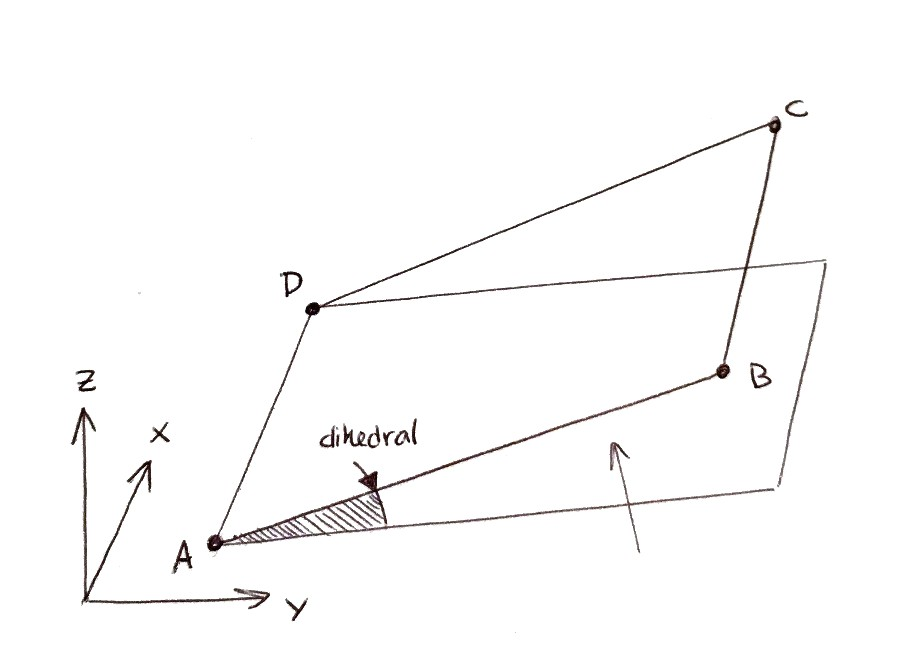 C
D
Z
B
X
dihedral
A
Y